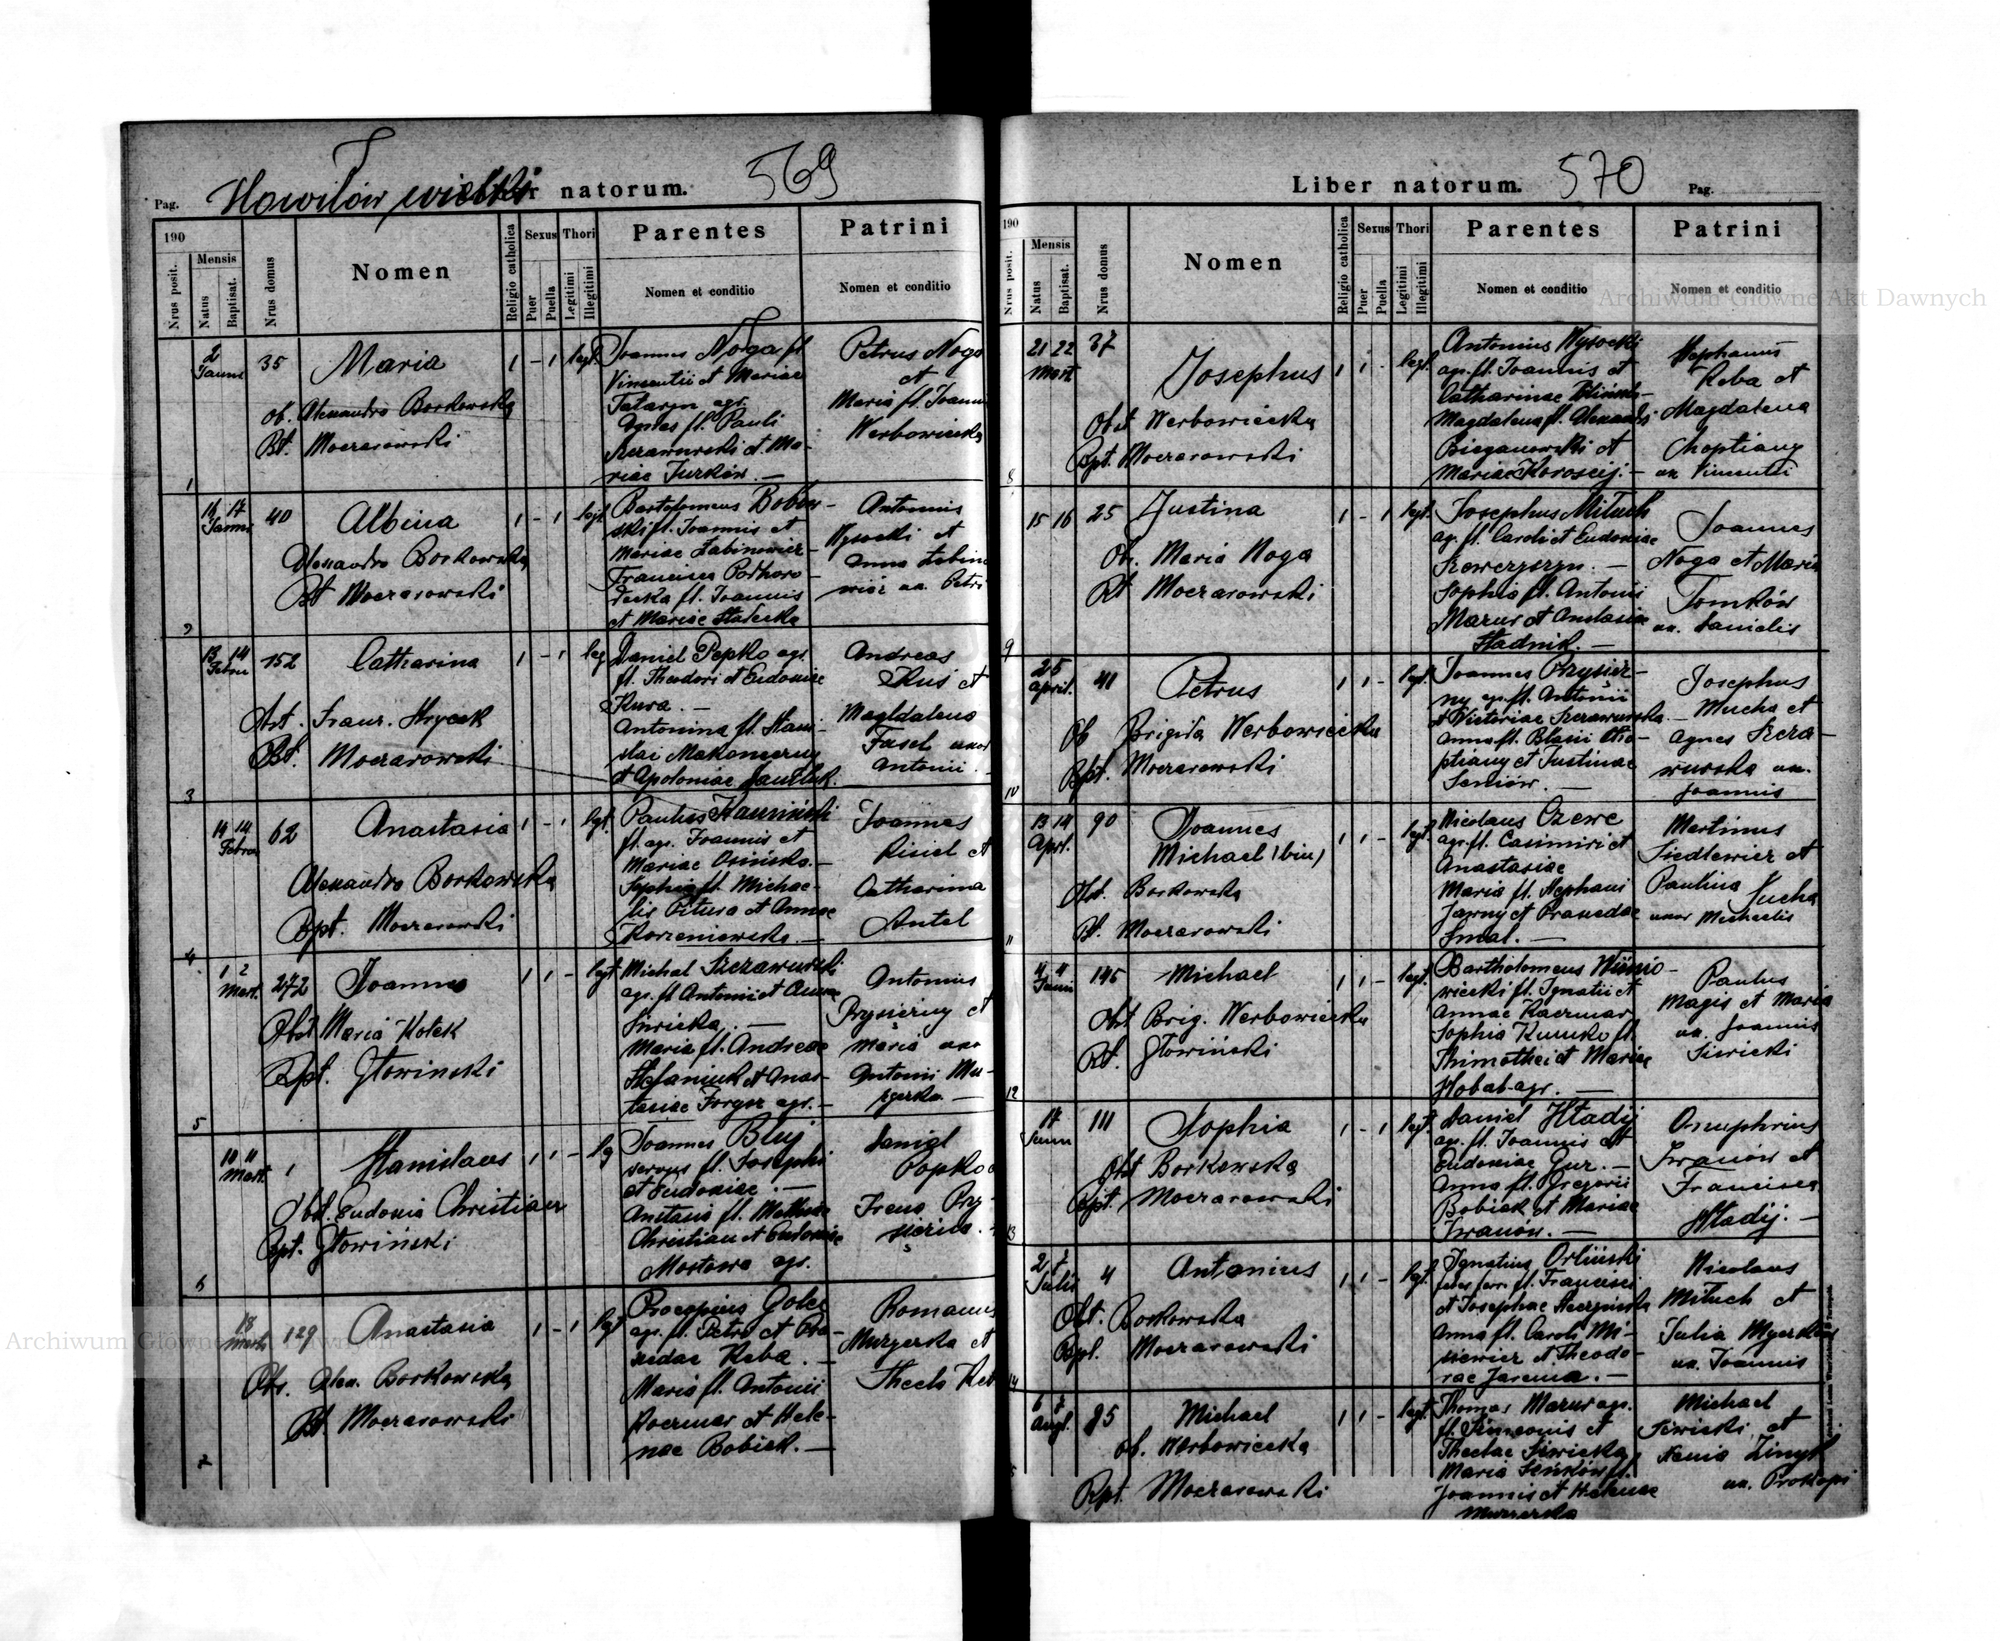 Howiłów wielki
natorum.
569
Pag.
190
Nrus posit.
Mensis
Natus
Baptisat.
Nrus domus
Nomen
Religio catholica
Sexus
Puer
Puella
Thori
Legitimi
Illegitimi
Parentes
Nomen et conditio
Patrini
Nomen et conditio
1
2
Januar
35
Maria
1 - 1 legt.
ob. Alexandra Borkowska
Bt. Moczarowski
Joannes Noga fl.
Vincentii et Mariae
Tataryn agr.
Agnes fl. Pauli
Szczawurski et Ma-
riae Turków. —
Petrus Noga
et
Maria fl. Joannis
Werbowiecka
2
16 17
40
Albina
1 - 1 legt.
Alexandra Borkowska
Bt Moczarowski
Bartolomeus Bobow-
ski fl. Joannis et
Mariae Łabinowicz
Francisca Podhoro-
decka fl. Joannis
et Mariae Stadecka
Antonius
Wysocki et
Anna
ux. Petri
3
13 14
Febru
152
Catharina
1 - 1 leg
Obst. Franc. Hrycek
Bt. Moczarowski
Daniel Pepko agr.
fl. Theodori et Eudoxiae
Kura. —
Antonina fl. Stani-
slai Makomerny
et Apoloniae
Andreas
Kus et
Magdalena
Fasel uxor
Antonii. —
4
14 14
Febru
62
Anastasia
1 - 1 legt.
Alexandra Borkowska
Bpt. Moczarowski
Paulus
fl. agr. Joannis et
Mariae Osińska. —
Sophia fl. Michae-
lis Pitura et Annae
Korzeniewska. —
Joannes
Kisiel et
Catharina
Antel
5
1 2
Mart.
272
Joannes
1 1 - legt
Obst Maria Kotek
Bpt. Głowinski
Michal Szczawurski
agr. fl. Antonii et Annae
Siwicka. —
Maria fl. Andreae
Stefaniuk et Anas-
tasiae Forgsz agr. —
Antonius
Przysiężny et
Maria uxor
Antonii Mu-
zyerka —
6
10 11
Mart.
1
Stanislaus
1 1 - leg
Obst. Eudoxia Christian
Bpt. Głowinski
Joannes Bluj
servus fl. Josephi
et Eudoxiae. —
Anastasia fl. Mathiae
Christian et Eudoxiae
Mostowa agr.
Daniel
Popko et
Irena Przy-
7
18
129
Anastasia
1 - 1 legt
Obs. Alex. Borkowska
Bt. Moczarowski
Procopius Golec
agr. fl. Petri et Pra-
xedae Reba. —
Maria fl. Antonii
Kaczmar et Hele-
nae Bobiek. —
Romanus
Muzyerka et
Liber natorum.
570
Pag.
190
Nrus posit.
Mensis
Natus
Baptisat.
Nrus domus
Nomen
Religio catholica
Sexus
Puer
Puella
Thori
Legitimi
Illegitimi
Parentes
Nomen et conditio
Patrini
Nomen et conditio
8
21 22
Mart
37
Josephus
1 1 - legt.
Obst Werbowiecka
Bpt. Moczarowski
Antonius Wysocki
agr. fl. Joannis et
Catharinae
Magdalena fl. Alexandri
Bieganowski et
Mariae Koroscij. —
Stephanus
Reba et
Magdalena
Choptiany
ux Vincentii
9
15 16
25
Justina
1 - 1 legt.
Ob. Maria Noga
Bt Moczarowski
Josephus Mituch
ag. fl. Caroli et Eudoxiae
Szewczyszyn. —
Sophia fl. Antonii
Mazur et Anastasiae
Stadnik. —
Joannes
Noga et Maria
Tomków
ux. Danielis
10
25
April.
41
Petrus
1 1 - legt.
Ob Brigida Werbowiecka
Bpt. Moczarowski
Joannes Przysięż-
ny agr. fl. Antonii
et Victoriae Szczawurska. —
Anna fl. Blasii Cho-
ptiany et Justinae
Seniów. —
Josephus
Mucha et
Agnes Szcza-
wurska ux.
Joannis
11
13 14
Aprl.
90
Joannes
Michael (bin)
1 1 - legt.
Obst. Borkowska
Bt. Moczarowski
Nicolaus Czewe
agr. fl. Casimiri et
Anastasiae
Maria fl. Stephani
Jawny et Praxedae
Smal. —
Martinus
Siedlewicz et
Paulina Sucha
uxor Michaelis
12
4 4
Junii
145
Michael
1 1 - legt.
Obst Brig. Werbowiecka
Bt. Głowiński
Bartholomeus Wisnio-
wiecki fl. Ignatii et
Annae Kaczmar
Sophia Kumko fl.
Thimothei et Mariae
Hobal agr. —
Paulus
Magis et Maria
ux. Joannis
Siwicki
13
17
Junii
111
Sophia
1 - 1 legt.
Obst Borkowska
Bpt. Moczarowski
Daniel Hładij
agr. fl. Joannis et
Eudoxiae Gur. —
Anna fl. Gregorii
Bobiek et Mariae
Iwanów. —
Onuphrius
Iwanów et
Francisca
Hładij. —
14
2 7
Julii
4
Antonius
1 1 - legt.
Obt. Borkowska
Bpt. Moczarowski
Ignatius Orliński
fl. Francisci
et Josephae Skerpińska
Anna fl. Caroli Mi-
siewicz et Theodo-
rae Jarema. —
Nicolaus
Mituch et
Julia Myerka
ux. Joannis
6 7
Augt.
85
Michael
1 1 - legt.
ob. Werbowiecka
Bpt. Moczarowski
Thomas Mazur agr.
fl. Simeonis et
Theclae Siwicka
Maria Seńków fl.
Joannis et Helenae
Muzyerka
Michael
Siwicki et
Xenia
ux. Prokopi
Archiwum Główne Akt Dawnych
Archiwum Główne Akt Dawnych